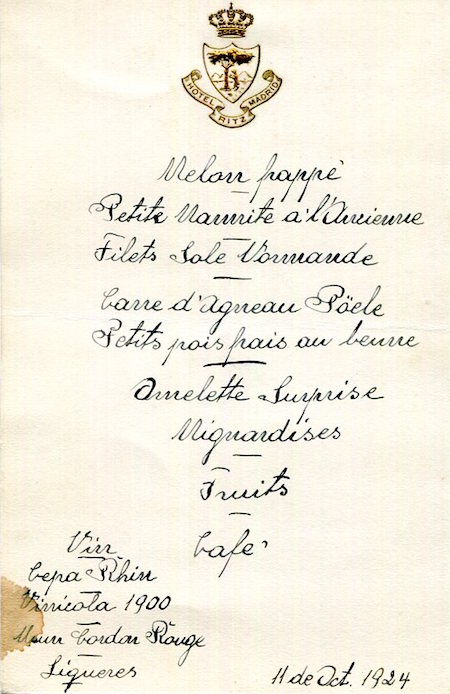 HOTEL RITZ MADRID
Melon frappé
Petite Marmite à l'Ancienne
Filets Sole Normande
Carre d'Agneau Pöele
Petits pois frais au beurre
Omelette Surprise
Mignardises
Fruits
Cafe
Vin
Cepa Rhin
Vinicola 1900
Mum Cordon Rouge
Liqueres
11 de Oct. 1924